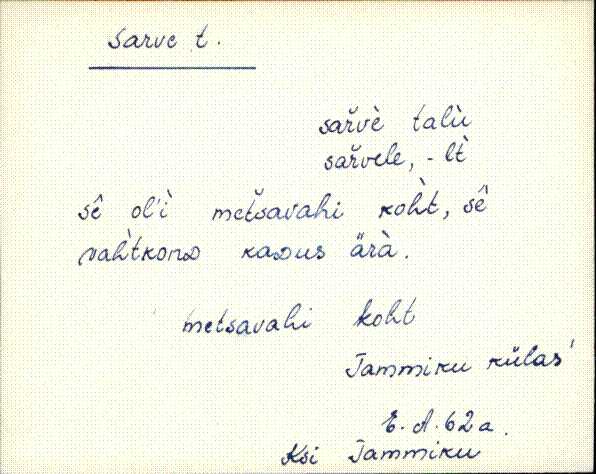 Sarve t.
sařvè talù
sařvele, -lt̀
sê ol'ì metšavahi koh̀t, sê
vah̀tkonᴅ kaᴅus ärà.
metsavahi koht
Tammiku külas'
E.A.62a.
Ksi Tammiku